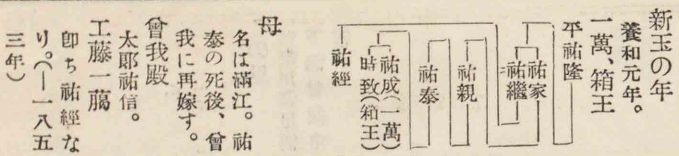 新玉の年
養和元年。
一萬、箱王
平祐隆
祐家
祐繼
祐親
祐泰
祐成(一萬)
時致(箱王)
祐經
母
名は滿江。祐
泰の死後、曾
我に再嫁す。
曾我殿
太郎祐信。
工藤一﨟
卽ち祐經な
り。(—一八五
三年)